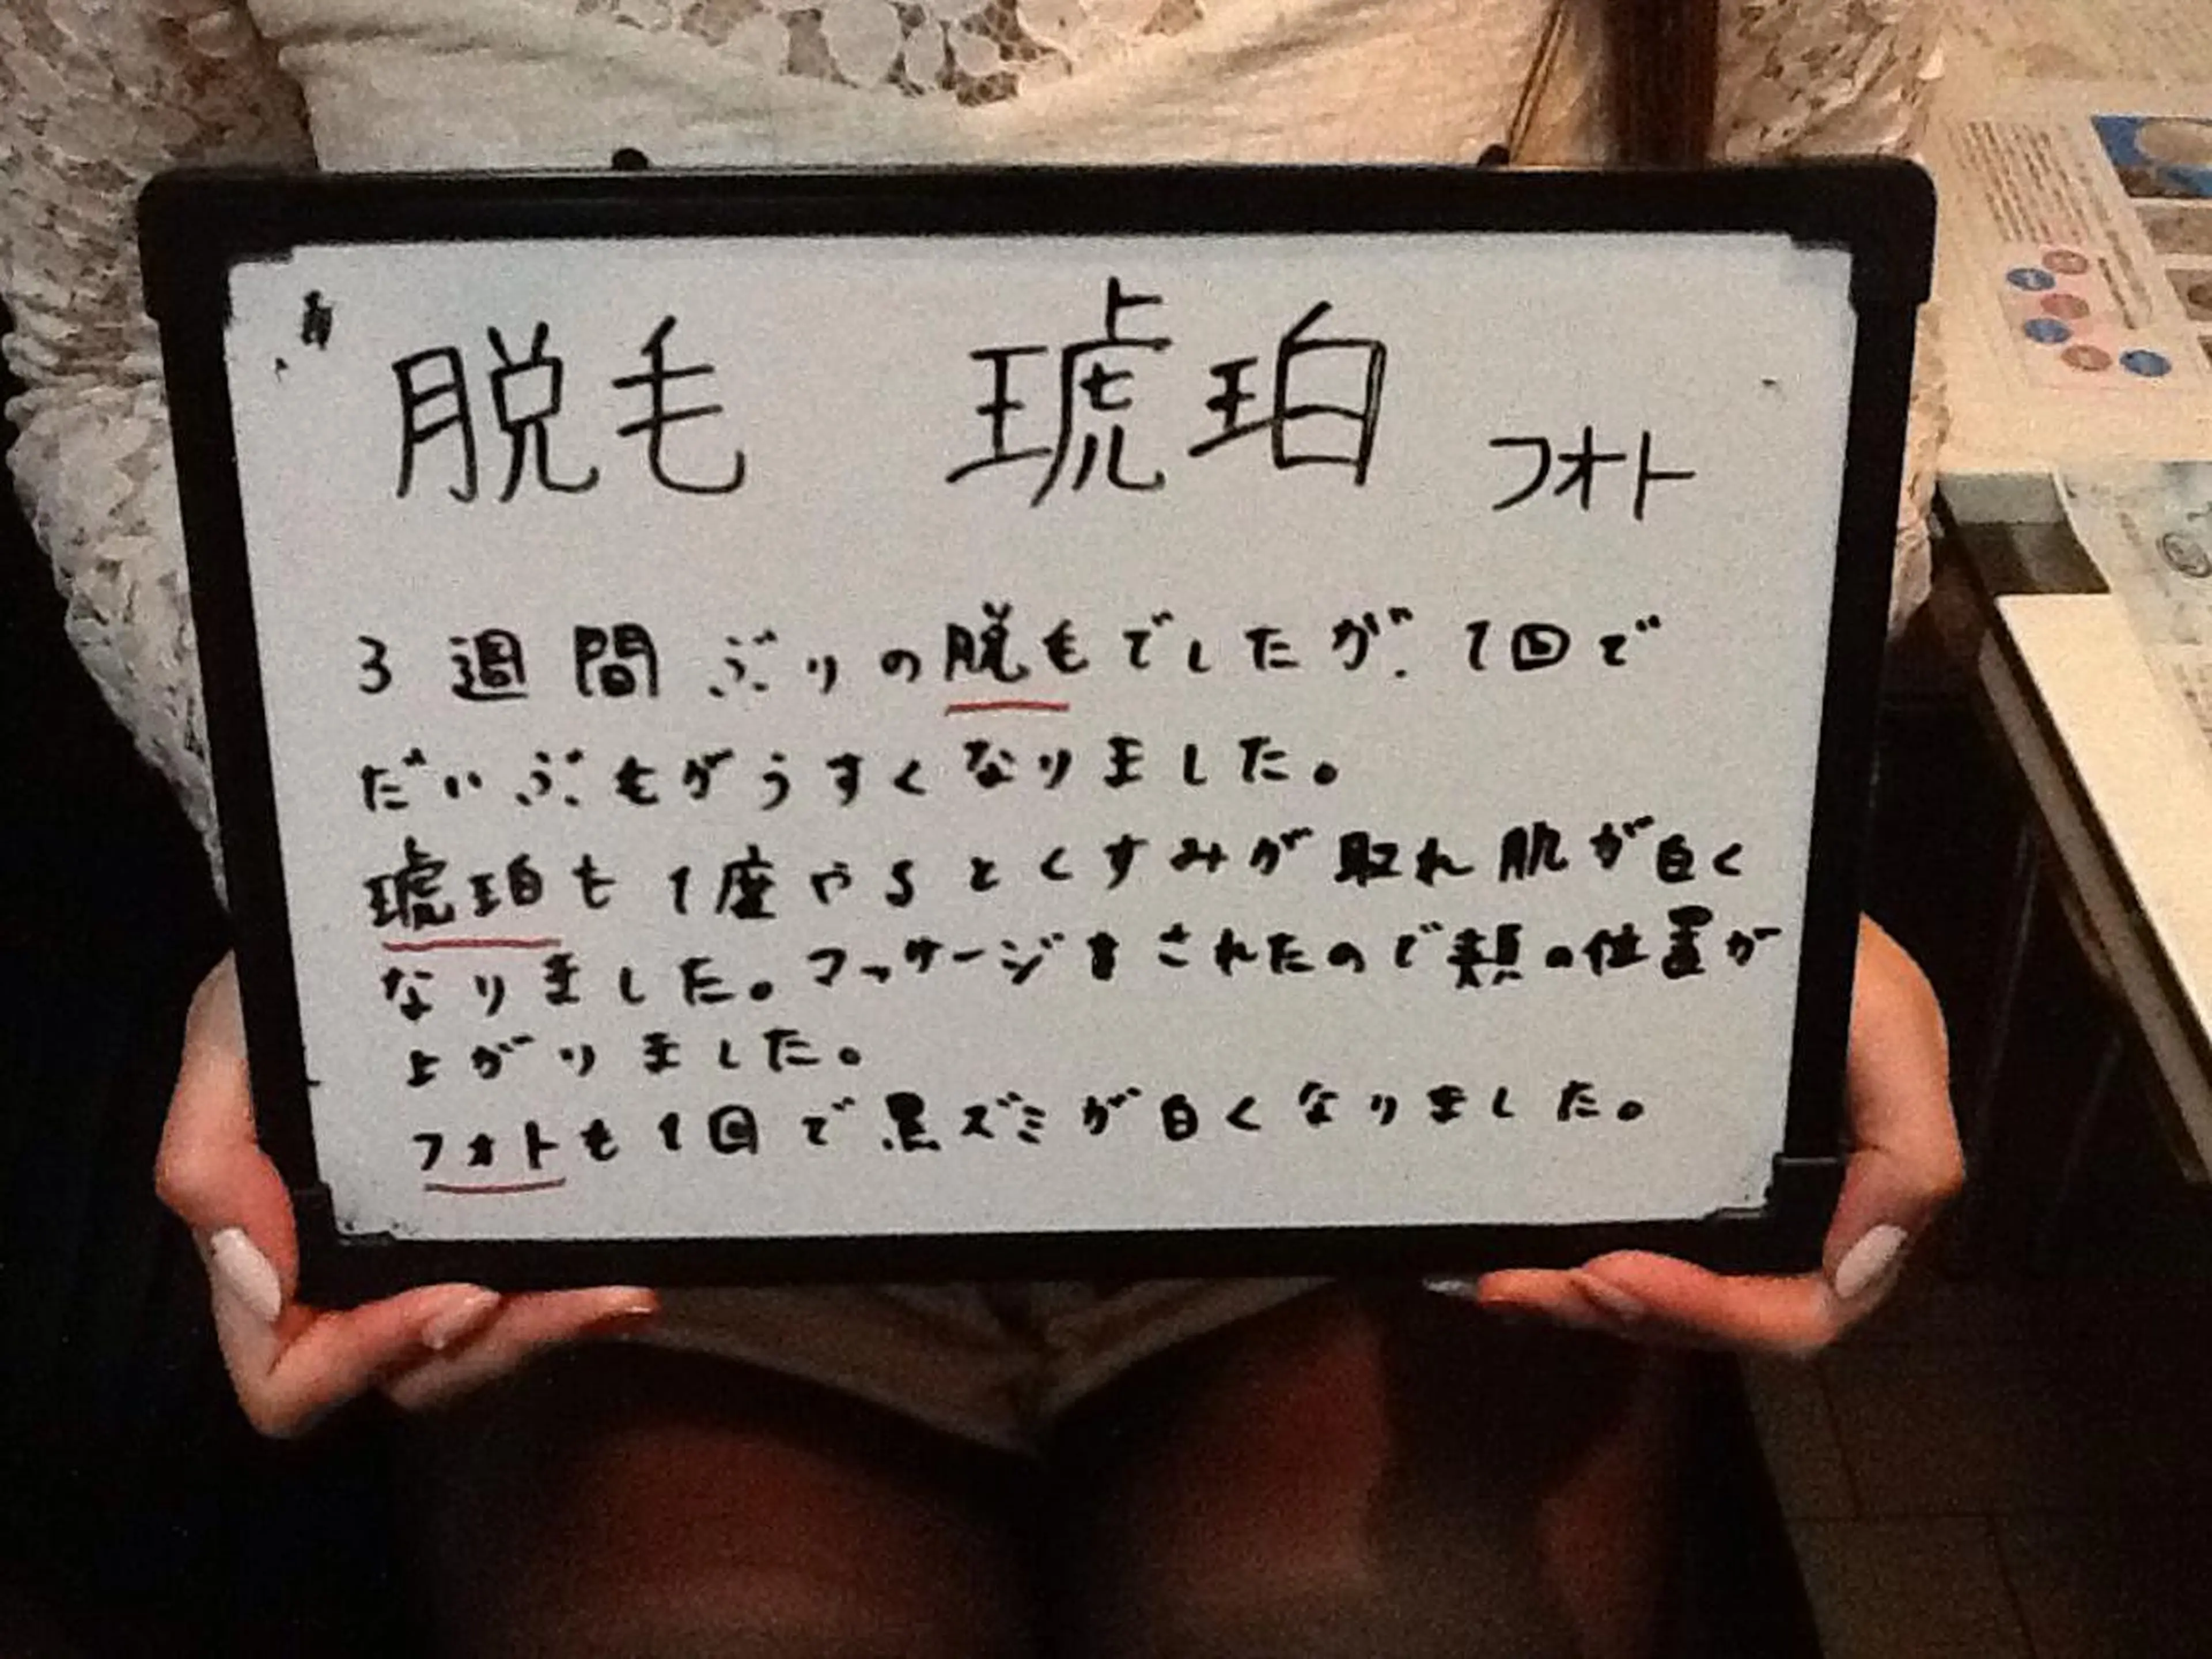 脱毛 琥珀 フォト
3週間ぶりの脱毛でしたが、1回で
だいぶ毛がうすくなりました。
琥珀も1度やるとくすみが取れ肌が白く
なりました。マッサージをされたので頬の位置が
上がりました。
フォトも1回で黒ズミが白くなりました。